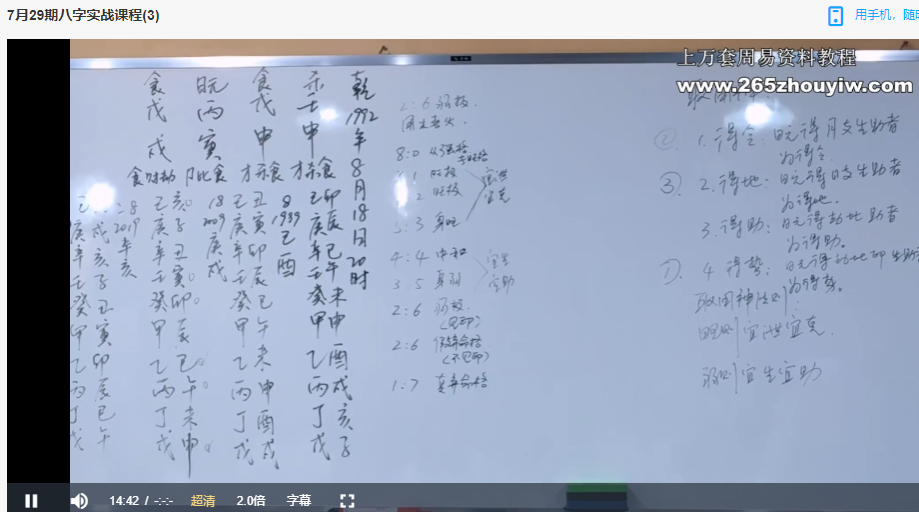 7月29期八字实战课程(3)
用手机，随时
上万套周易资料教程
www.265zhouyiw.com
乾 1992年8月18日20时
杀壬申
食戊申
日元丙寅
食戊戌
才杀食
才杀食
卩比食
食财劫
8
1999
己酉
18
2009
庚戌
28
2019
辛亥
己卯
庚辰
辛巳
壬午
癸未
甲申
乙酉
丙戌
丁亥
戊子
己丑
庚寅
辛卯
壬辰
癸巳
甲午
乙未
丙申
丁酉
戊戌
己亥
庚子
辛丑
壬寅
癸卯
甲辰
乙巳
丙午
丁未
戊申
戌
庚
辛亥
壬子
癸丑
甲寅
乙卯
丙辰
丁巳
戊午
2:6
8:0
3:3 身旺
4:4 中和
3:5 身弱
2:6
(见印)
2:6
(不见印)
1:7
宜泄
宜克
宜生
宜助
② 1. 得令: 日元得月支生助者
为得令.
③ 2. 得地: 日元得日支生助者
为得地.
3. 得助: 日元得劫比助者
为得助.
① 4 得势: 日元得劫比印生助
为得势.
取用神法则
旺则宜泄宜克.
弱则宜生宜助
14:42 / -:-:-
超清
2.0倍
字幕